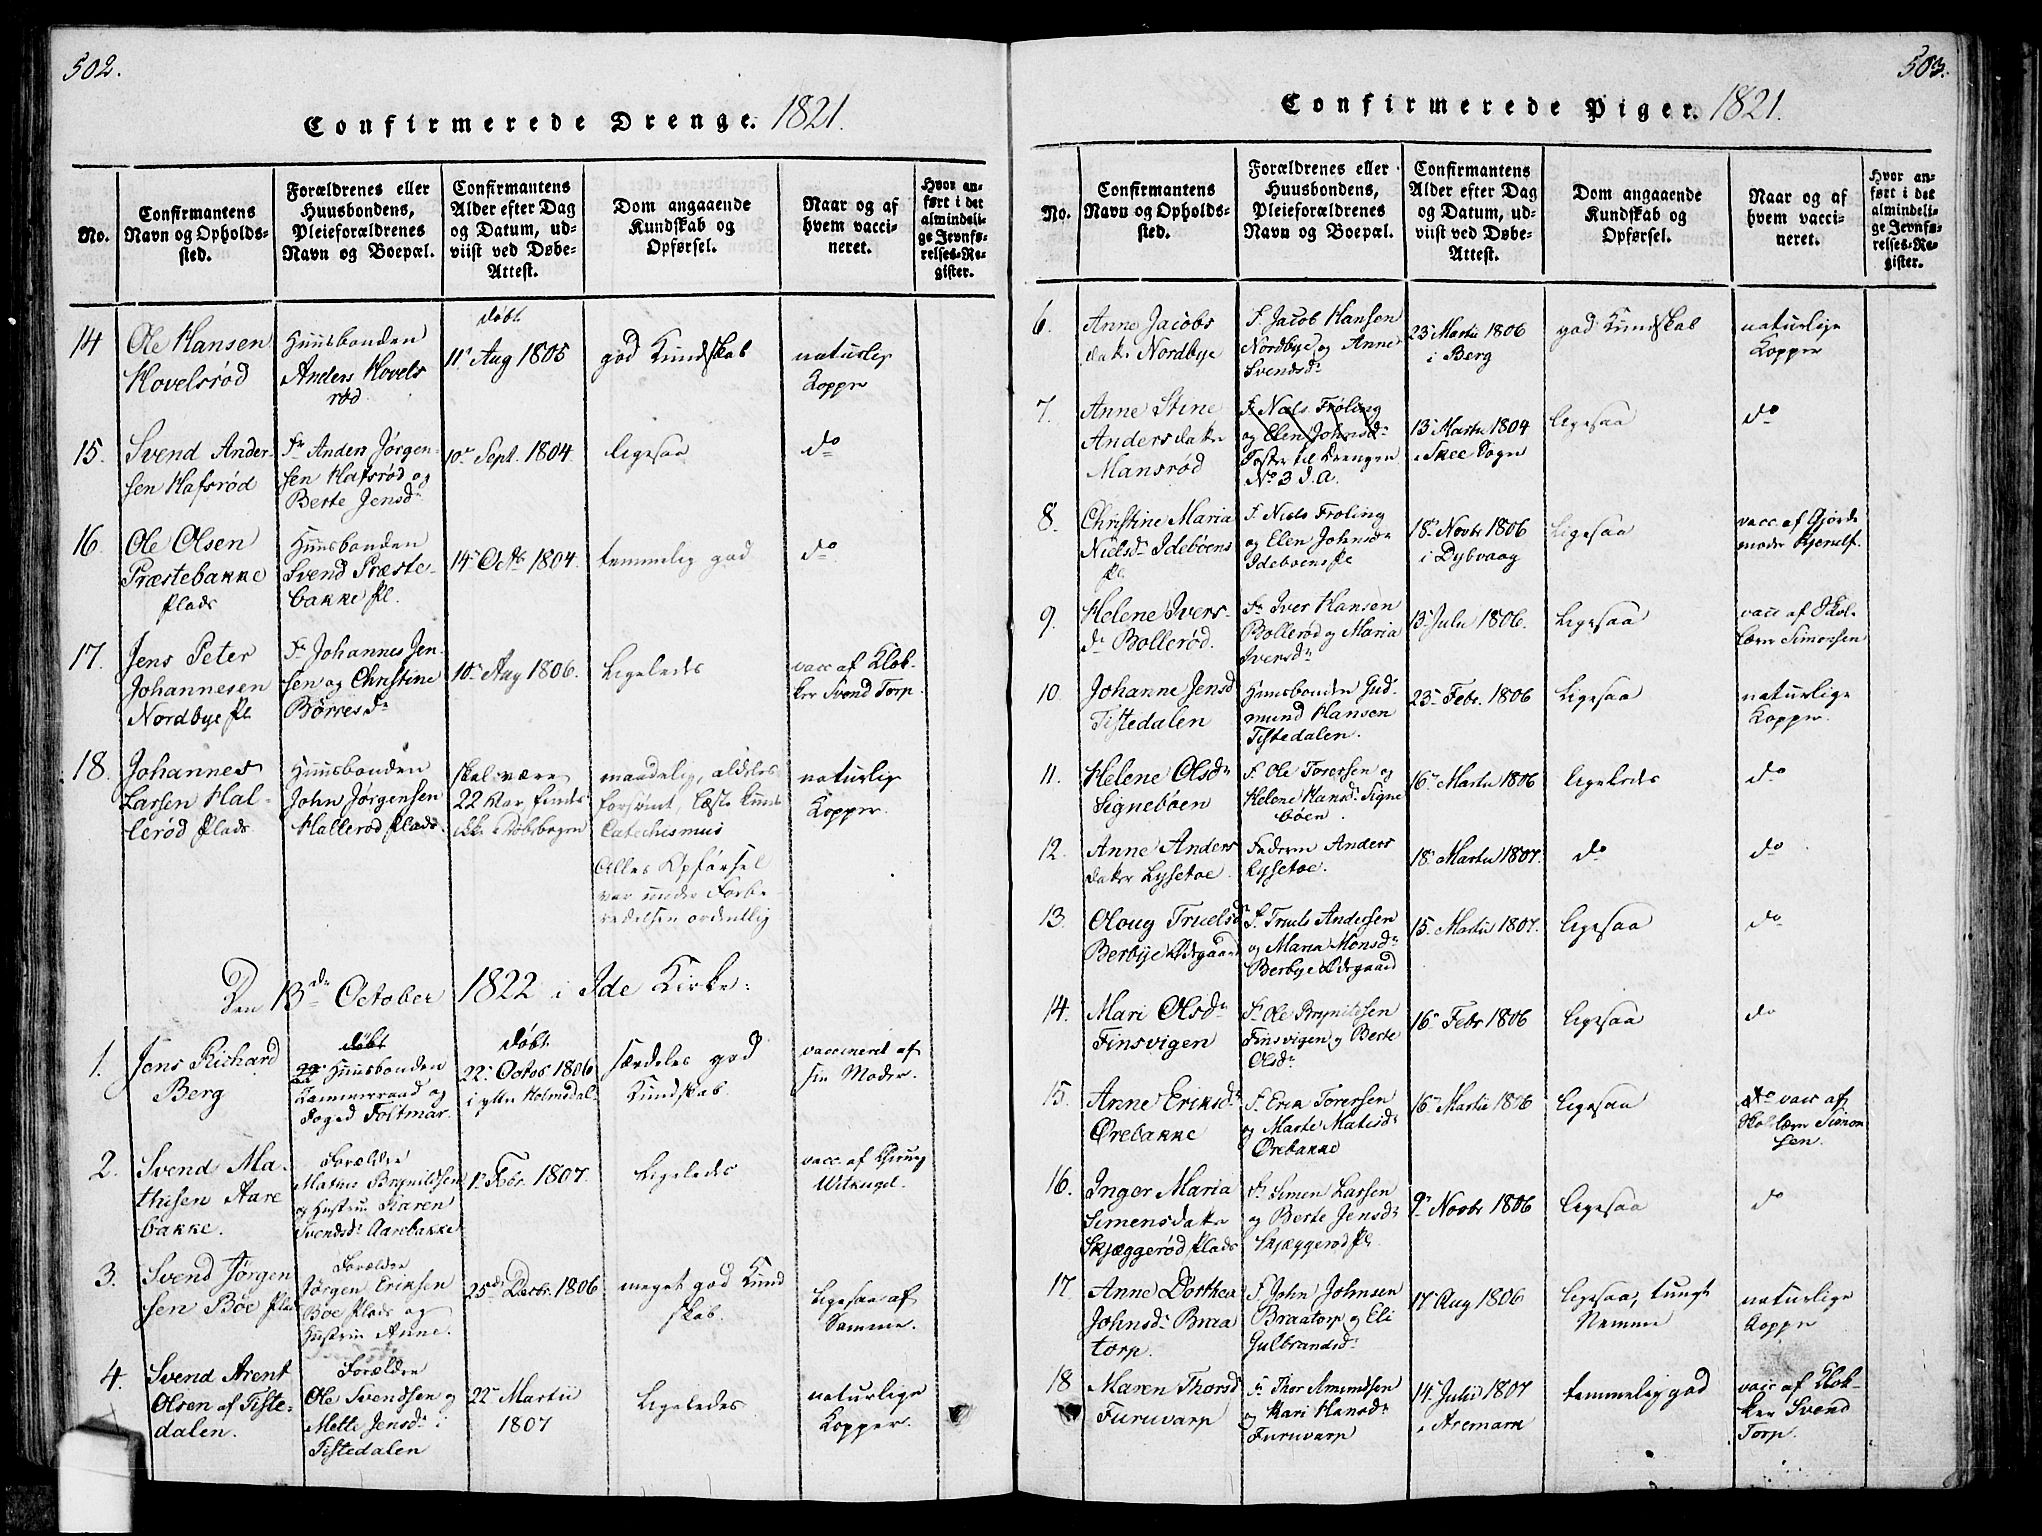 502.
Confirmerede Drenge. 1821.
No.
Confirmantens Navn og Opholdssted.
Forældrenes eller Huusbondens, Pleieforældrenes Navn og Boepæl.
Confirmantens Alder efter Dag og Datum, udviist ved Døbe-Attest.
Dom angaaende Kundskab og Opførsel.
Naar og af hvem vaccineret.
Hvor anført i det almindelige Jevnførelses-Register.
14
Ole Hansen
Hovelsrød
Huusbonden
Anders Hovels
rød
døbt
11 Aug 1805
god Kundskab
naturlig
Kopper
15.
Svend Ander-
sen Hafsrød
Fr Anders Jørgen-
sen Hafsrød og
Berte Jensdr
10 Sept. 1804.
ligesaa
do
16.
Ole Olsen
Præstebakke
Plads
Huusbonden
Svend Præste-
bakke Pl.
14 Octbr 1804.
temmelig god
do
17.
Jens Peter
Johannesen
Nordbye Pl
Fr Johannes Jen-
sen og Christine
Børresdr
10 Aug 1806.
Ligeledes
vacc af Klok-
ker Svend Torp.
18.
Johannes
Larsen Hal-
lerød Plads.
Huusbonden
John Jørgensen
Hallerød Plads.
skal være
22 Aar, findes
ikke i Døbebogen
maadelig, aldeles
forsømt, læste kun
Catechismus
naturlig
Kopper.
Alles Opførsel
var under Forbe-
redelsen ordentlig
Den 13de October 1822 i Ide Kirke:
1.
Jens Richard
Berg
døbt
Huusbonden
Kammerraad og
Foged Foltmar.
døbt
22 Octob 1806
i Holmedal
særdeles god
Kundskab
vaccineret af
sin Moder.
2.
Svend Ma-
thisen Aare
bakke.
Forældre
Matius Brynildsen
og Hustru Karen
Svendsdr Aarebakke
1 Febr. 1807.
Ligeledes
vacc. af Chirurg
Witkugel.
3.
Svend Jørgen
sen Böe Plads
Forældre
Jørgen Eriksen
Böe Plads og
Hustru Anne.
25de Decbr. 1806
meget god Kund
skab.
Ligesaa af
Samme.
4.
Svend Arent
Olsen af Tiste-
dalen.
Forældre
Ole Svendsen og
Mette Jensdr i
Tistedalen
22 Martii
1807
Ligeledes
naturlige
Kopper.
503.
Confirmerede Piger. 1821.
No.
Confirmantens Navn og Opholdssted.
Forældrenes eller Huusbondens, Pleieforældrenes Navn og Boepæl.
Confirmantens Alder efter Dag og Datum, udviist ved Døbe-Attest.
Dom angaaende Kundskab og Opførsel.
Naar og af hvem vaccineret.
Hvor anført i det almindelige Jevnførelses-Register.
6.
Anne Jacobs
datter Nordbye
F. Jacob Hansen
Nordbye og Anne
Svendsdr
23 Martii 1806
i Berg
god Kundskab
naturlige
Kopper
7.
Anne Stine
Andersdatter
Mansrød
F. Niels Fröling
og Elen Johnsdr
Søster til Drengen
No 3 d.A.
13 Martii 1804
i Skee Sogn
ligesaa
do
8.
Christine Maria
Nielsdr Idebøens
Pl
F. Niels Fröling
og Elen Johnsdr
Idebøens Pl
18 Novbr 1806
i Dybvaag
Ligesaa
vacc af Gjorde
moder Hjerulf.
9.
Helene Ivers-
dr Bollerød.
Fr Iver Hansen
Bollerød og Maria
Iversdr
13 Julii 1806.
Ligesaa
vacc af Skol-
lærer Simonsen
10.
Johanne Jensd
Tistedalen
Huusbonden Gud-
mund Hansen
Tistedalen.
23 Febr. 1806
Ligesaa
naturlige
Kopper.
11.
Helene Olsdr
Signebøen
F. Ole Torersen og
Helene Hansdr Signe
bøen.
16 Martii 1806
ligeledes
do
12.
Anne Anders
datter Lysetoe
Faderen Anders
Lysetoe.
18 Martii 1807.
do
do
13.
Oloug Truelsdr
Berbye Ødegaard
F. Truls Andersen
og Maria Monsdr
Berbye Ødegaard
15 Martii 1807.
ligesaa
do
14.
Mari Olsdr
Finsvigen
Fr Ole Brynildsen
Finsvigen og Berte
Olsdr
16 Febr 1806
ligesaa
do
15.
Anne Eriksdr
Ørebakke
F. Erik Torersen
og Marte Matisdr
Ørebakke
16 Martii 1806
ligesaa
vacc af
Skollærer Simon
sen.
16.
Inger Maria
Simensdatter
Skjæggerød Plads
Fr Simen Larsen
og Berte Jensdr
Skjæggerød Pl
9 Novbr 1806
ligesaa
do
17.
Anne Dorthea
Johnsdr Braa
torp.
F. John Johnsen
Braatorp og Eli
Gulbrandsdr
17 Aug 1806
ligesaa, tungt
Nemme
naturlige
Kopper
18
Maren Thorsd
Furuvarp
Fr Thor Amundsen
og Kari Hansdr
Furuvarp
14 Julii 1807
i Aremark
temmelig god
vacc af Klok-
ker Svend
Torp.